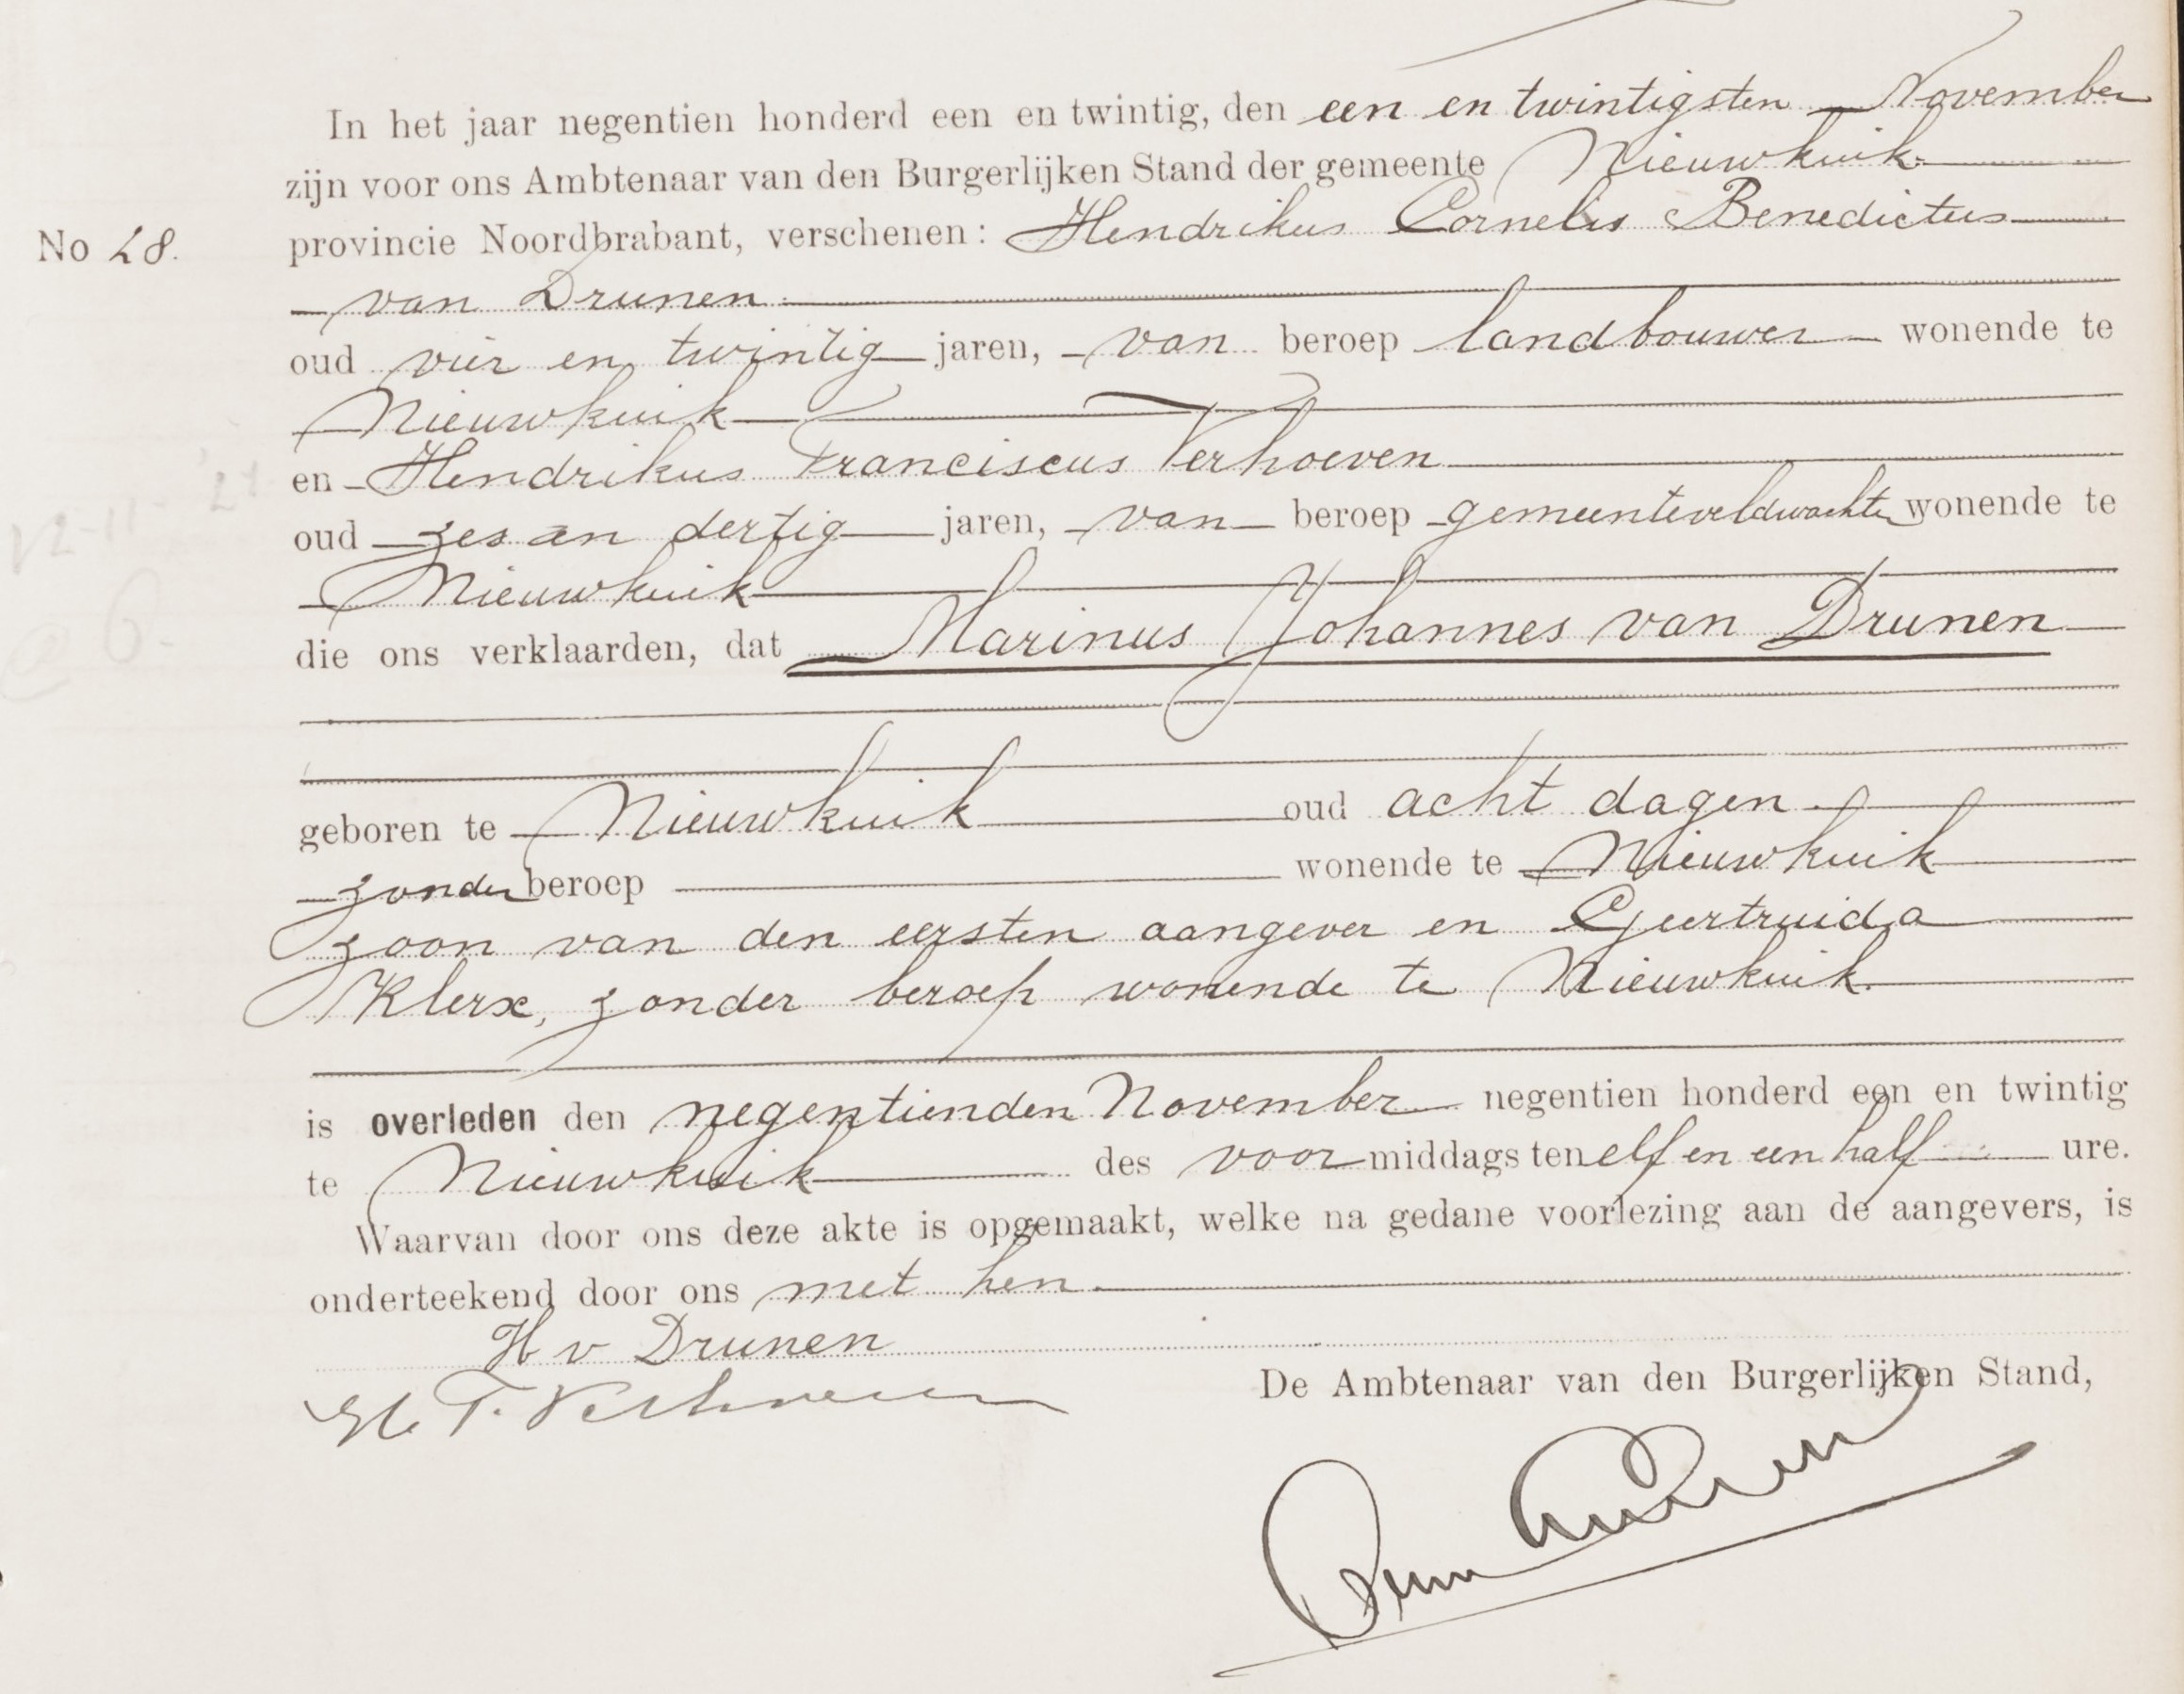 In het jaar negentien honderd een en twintig, den een en twintigsten November
zijn voor ons Ambtenaar van den Burgerlijken Stand der gemeente Nieuwkuik
No 28.
provincie Noordbrabant, verschenen: Hendrikus Cornelis Benedictus
van Drunen
oud vier en twintig jaren, van beroep landbouwer wonende te
Nieuwkuik
en Hendrikus Franciscus Verhoeven
oud zes en dertig jaren, van beroep gemeenteveldwachter wonende te
Nieuwkuik
die ons verklaarden, dat Marinus Johannes van Drunen
geboren te Nieuwkuik oud acht dagen
zonder beroep wonende te Nieuwkuik
zoon van den eersten aangever en Geertruida
Klerx, zonder beroep wonende te Nieuwkuik
is overleden den negentienden November negentien honderd een en twintig
te Nieuwkuik des voormiddags ten elf en een half ure.
Waarvan door ons deze akte is opgemaakt, welke na gedane voorlezing aan de aangevers, is
onderteekend door ons met hen.
H v Drunen
De Ambtenaar van den Burgerlijken Stand,
H. F. Verhoeven